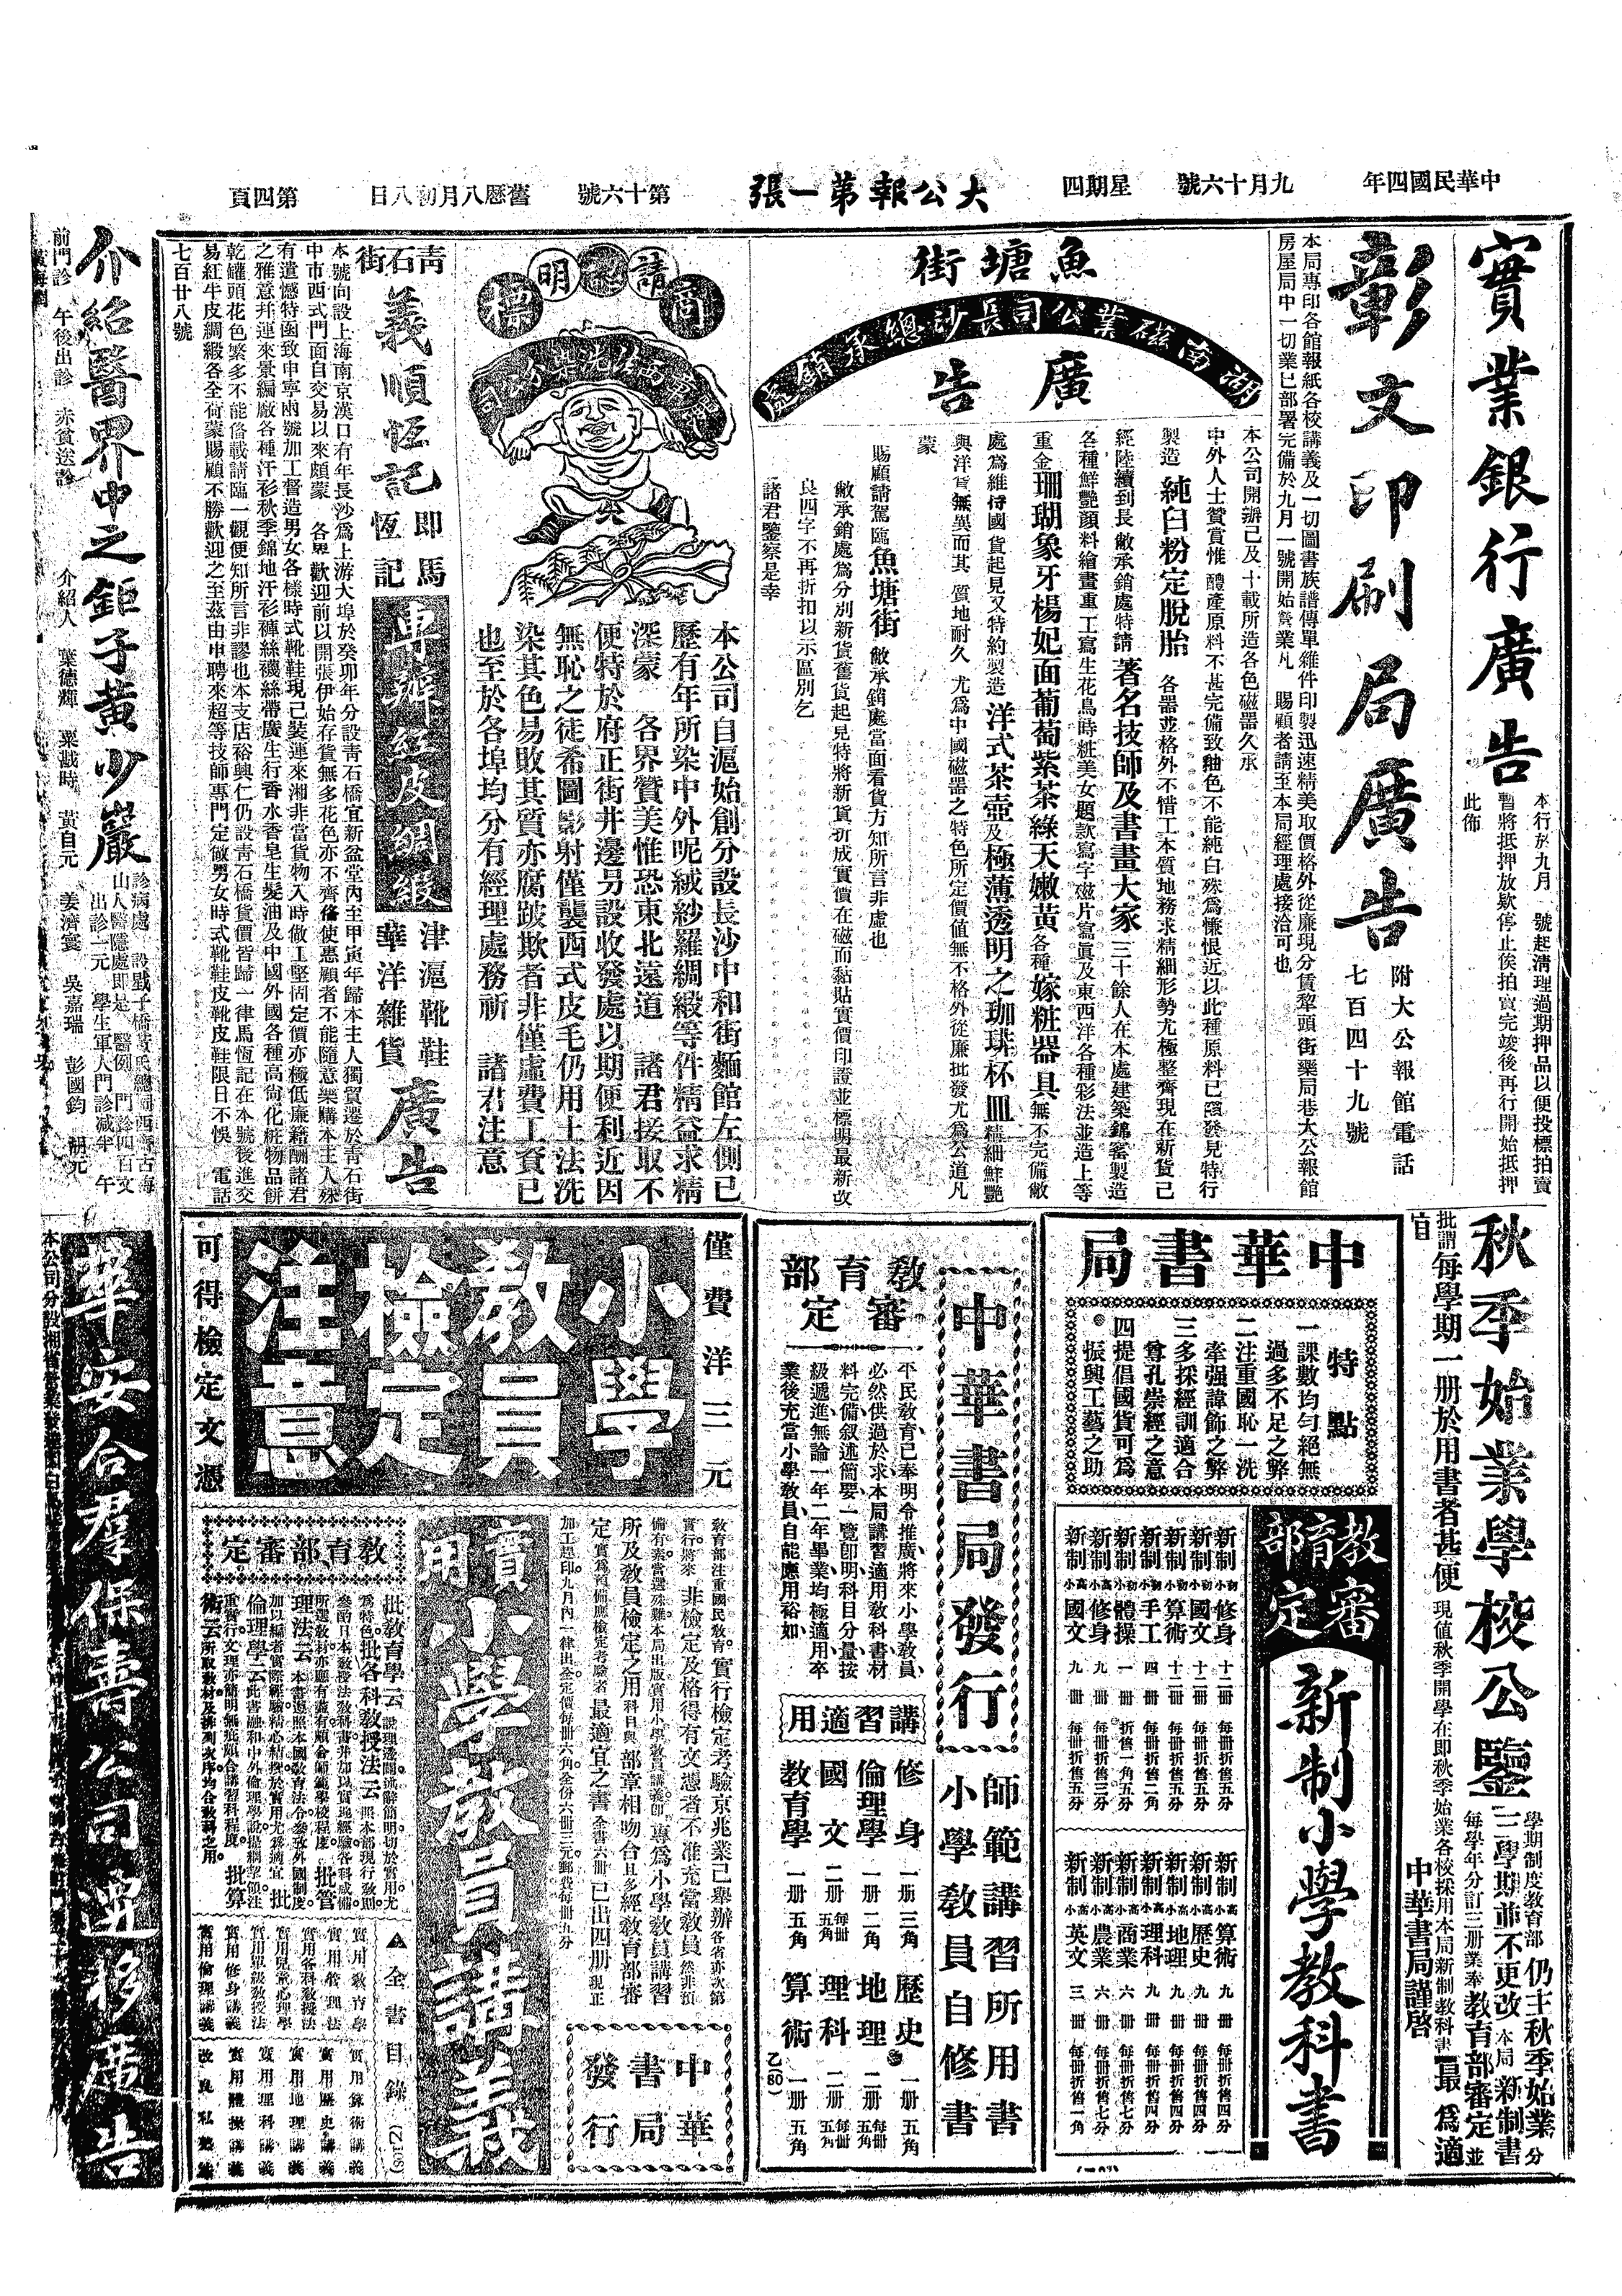 中華民國四年
九月十六號
星期四
大公報第一張
第十六號
舊歷八月初八日
第四頁
實業銀行廣告
本行於九月一號起清理過期押品以便投標拍賣
暫將抵押放欵停止俟拍賣完竣後再行開始抵押
此佈
彰文印刷局廣告
附大公報館電話
七百四十九號
本局專印各館報紙各校講義及一切圖書族譜傳單雜件印製迅速精美取價格外從廉現分賃犂頭街藥局巷大公報館
房屋局中一切業已部署完備於九月一號開始營業凡 賜顧者請至本局經理處接洽可也
魚塘街
湖南磁業公司長沙總承銷處
廣告
本公司開辦已及十載所造各色磁器久承
中外人士贊賞惟 醴產原料不甚完備致釉色不能純白殊爲慊恨近以此種原料已續發見特行
製造 純白粉定脫胎 各器並格外不惜工本質地務求精細形勢尤極整齊現在新貨已
經陸續到長敝承銷處特請 著名技師及書畫大家 三十餘人在本處建築錦窰製造
各種鮮艷顏料繪畫重工寫生花鳥時粧美女題欵寫字磁片寫眞及東西洋各種彩法並造上等
重金珊瑚象牙楊妃面葡萄紫茶綠天嫩黃各種嫁粧器具無不完備敝
處爲維持國貨起見又特約製造 洋式茶壺及極薄透明之珈琲杯皿精細鮮艷
與洋貨無異而其 質地耐久 尤爲中國磁器之特色所定價値無不格外從廉批發尤爲公道凡
蒙
賜顧請駕臨魚塘街 敝承銷處當面看貨方知所言非虛也
敝承銷處爲分別新貨舊貨起見特將新貨折成實價在磁而黏貼實價印證並標明最新改
良四字不再折扣以示區別乞
諸君鑒察是幸
商請認明標
本公司自滬始創分設長沙中和街麵館左側已
歷有年所染中外呢絨紗羅綢緞等件精益求精
深蒙 各界贊美惟恐東北遠道 諸君接取不
便特於府正街井邊另設收發處以期便利近因
無恥之徒希圖影射僅襲西式皮毛仍用土法洗
染其色易敗其質亦腐跛欺者非僅虛費工資已
也至於各埠均分有經理處務祈 諸君注意
青石街
義順恆記
即馬恆記
專辦紅皮綢緞
津滬靴鞋
華洋雜貨
廣告
本號向設上海南京漢口有年長沙爲上游大埠於癸卯年分設青石橋宜新盆堂內至甲寅年歸本主人獨貿遷於青石街
中市西式門面自交易以來頗蒙 各界歡迎前以開張伊始存貨無多花色亦不齊俻使惠顧者不能隨意樂購本主人殊
有遺憾特函致申寧兩號加工督造男女各樣時式靴鞋現已裝運來湘非當貨物入時做工堅固定價亦極低廉藉酬諸君
之雅意幷運來景綸廠各種汗衫秋季錦地汗衫褲絲襪絲帶廣生行香水香皂生髮油及中國外國各種高尙化粧物品餅
乾罐頭花色繁多不能俻載請臨一觀便知所言非謬也本支店裕興仁仍設青石橋貨價皆歸一律馬恆記在本號後進交
易紅牛皮綢緞各全荷蒙賜顧不勝歡迎之至茲由申聘來超等技師專門定做男女時式靴鞋皮靴皮鞋限日不悞 電話
七百廿八號
介紹醫界中之鉅子黃少巖
山人醫隱處即是
出診一元
學生軍人門診減半
前門診 午後出診 赤貧送診
介紹人 葉德輝 粟戡時 黃自元 姜濟寰 吳嘉瑞 彭國鈞 胡元
秋季始業學校公鑒
學期制度教育部 仍主秋季始業 分
三學期並不更改 本局 新制書
每學年分訂三册業奉教育部審定 並
批謂 每學期一册於用書者甚便 現值秋季開學在即秋季始業各校採用本局新制教科書 最爲適
宜
中華書局謹啓
中華書局
特點
一課數均匀絕無
過多不足之弊
二注重國恥一洗
牽强諱飾之弊
三多採經訓適合
尊孔崇經之意
四提倡國貨可爲
振興工藝之助
教育部審定
新制小學教科書
新制初小修身 十二冊 每冊折售五分
新制初小國文 十二冊 每冊折售五分
新制初小算術 十二冊 每冊折售五分
新制初小手工 四冊 每冊折售二角
新制初小體操 一冊 折售一角五分
新制高小修身 九冊 每冊折售三分
新制高小國文 九冊 每冊折售五分
新制高小算術 九冊 每冊折售四分
新制高小歷史 九冊 每冊折售四分
新制高小地理 九冊 每冊折售四分
新制高小理科 九冊 每冊折售四分
新制高小商業 六冊 每冊折售七分
新制高小農業 六冊 每冊折售七分
新制高小英文 三冊 每冊折售一角
中華書局發行
師範講習所用書
小學教員自修書
教育部審定
平民教育已奉明令推廣將來小學教員
必然供過於求本局講習適用教科書材
料完備叙述簡要一覽卽明科目分量按
級遞進無論一年二年畢業均極適用卒
業後充當小學教員自能應用裕如
講習適用
修身 一册 三角
倫理學 一册 二角
國文 二册 每冊五角
教育學 一册 五角
歷史 一册 五角
地理 二册 每冊五角
理科 二册 每冊五角
算術 一册 五角
乙(80)
僅費洋三元
小學教員檢定注意
可得檢定文憑
教育部注重國民教育實行檢定考驗京兆業已舉辦各省亦次第
實行將來 非檢定及格得有文憑者不准充當教員 然非預
備有素當選殊難本局出版實用小學教員講義卽專爲小學教員講習
所及教員檢定之用科目與部章相吻合且多經教育部審
定實爲預備應檢定考驗者最適宜之書 全書六册已出四册 現正
加工趕印九月內一律出全定價每冊六角全份六冊三元郵費每冊五分
中華書局發行
實用小學教員講義
教育部審定
批教育學云 說理透闢流辭簡明切於實用尤
爲特色 批各科教授法云 照本部現行教則
參酌日本教授法教科書幷加以實地經驗各科咸備
所選教材亦應有盡有頗合師範學校程度 批管
理法云 本書遵照本國教育法令參致外國制度
加以編者實際經驗精心結撰於實用尤爲適宜 批
倫理學云 此書融和中外倫理學說提綱挈領注
重實行文理亦簡明無疵頗合講習科程度 批算
術云 所取教材及排列次序均合教科之用
全書目錄
實用教育學
實用管理法
實用各科教授法
實用兒童心理學
實用單級教授法
實用修身講義
實用倫理講義
實用算術講義
實用歷史講義
實用地理講義
實用理科講義
實用體操講義
改良私塾
華安合羣保壽公司遷移廣告